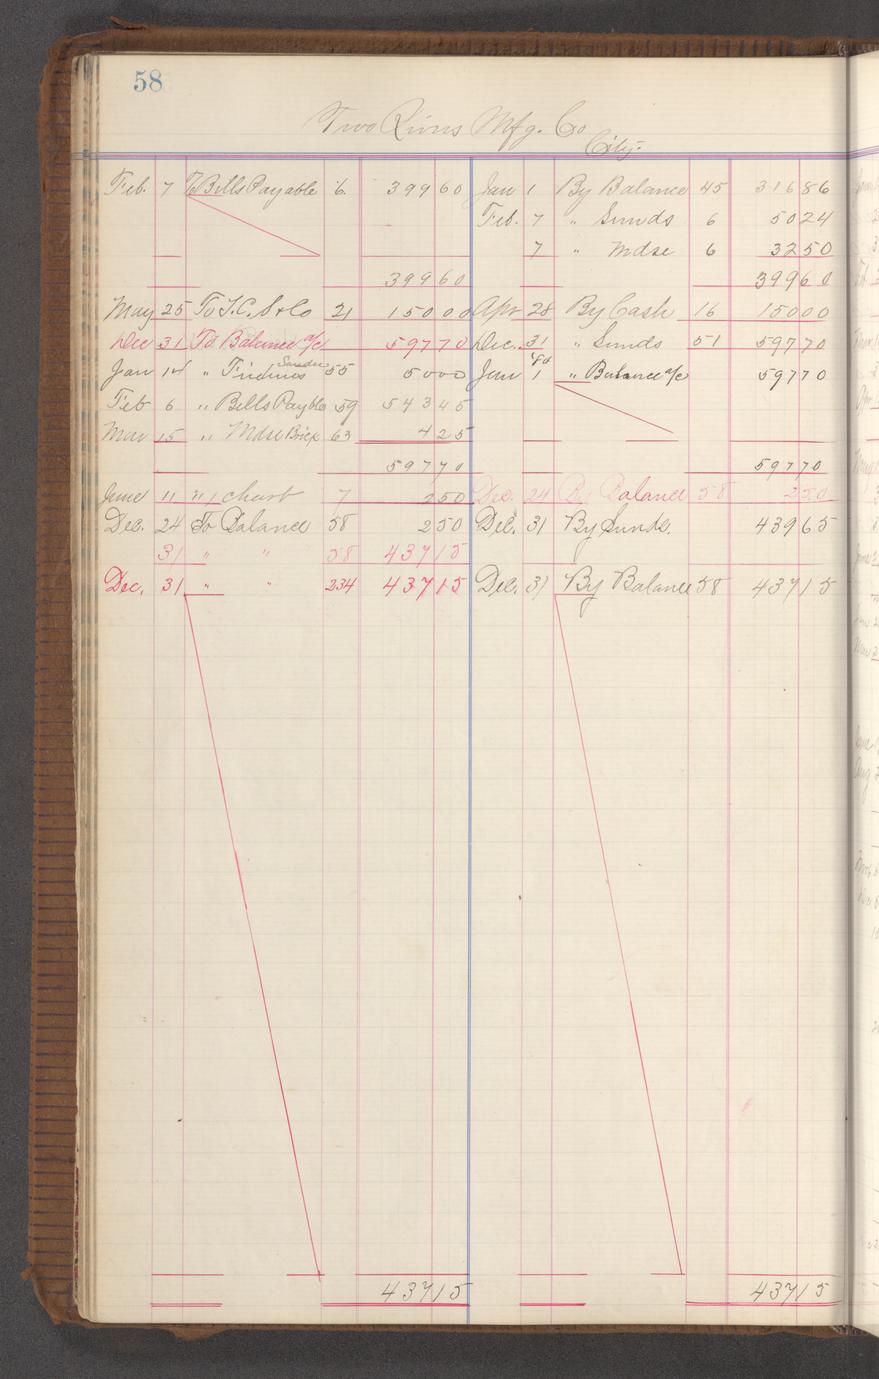 58
Two Rivers Mfg. Co
City.
Feb. 7 To Bills Payable 6 399 60 Jan 1 By Balance 45 316 86
Feb. 7 " Sunds 6 50 24
7 " Mdse 6 32 50
399 60 399 60
May 25 To T.C. S & Co 21 150 00 Apr 28 By Cash 16 150 00
Dec 31 To Balance a/c 597 70 Dec. 31 " Sunds 51 597 70
Jan 14 " Sundr 55 50 00 Jan 1 " Balance a/c 597 70
Feb 6 " Bills Payble 59 543 45
Mar 15 " Mdse Brick 63 4 25
597 70 597 70
June 11 " 7 2 50 Dec. 24 By Balance 58 2 50
Dec. 24 To Balance 58 2 50 Dec. 31 By Sunds. 439 65
31 " " 58 437 15
Dec. 31 " " 234 437 15 Dec. 31 By Balance 58 437 15
437 15 437 15